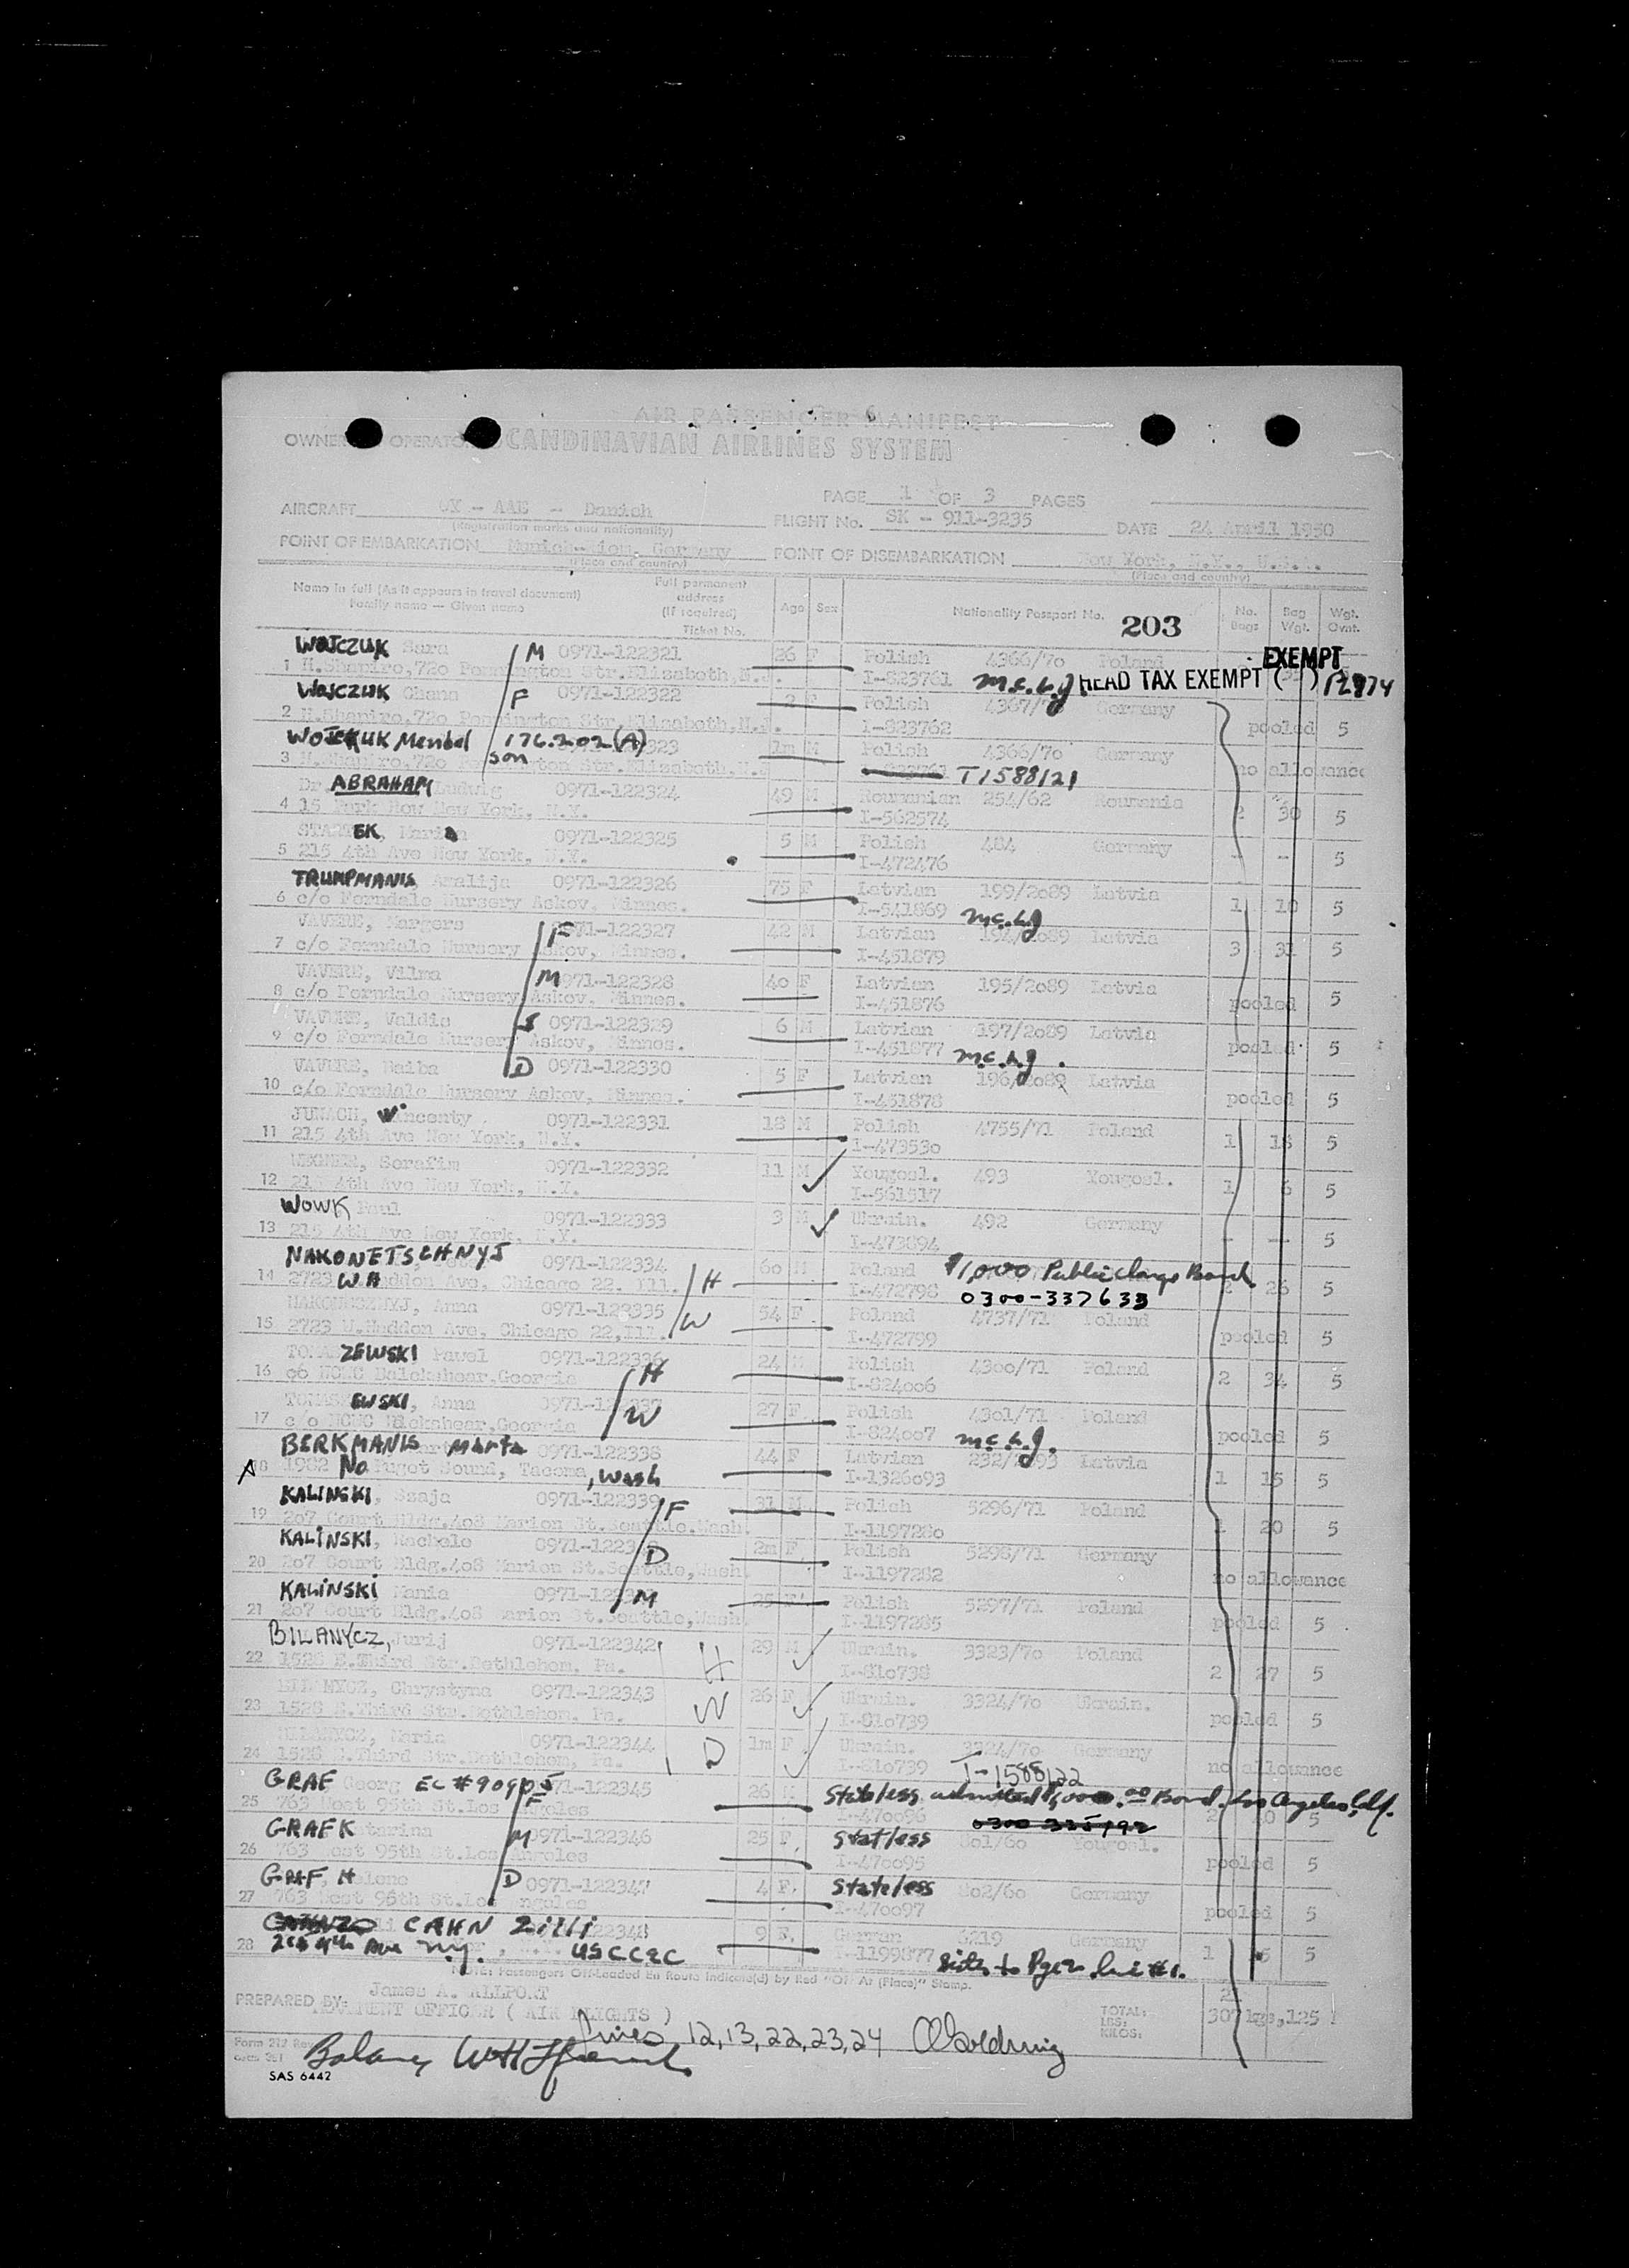 AIR PASSENGER MANIFEST
OWNER OPERATO SCANDINAVIAN AIRLINES SYSTEM
PAGE 1 OF 3 PAGES
AIRCRAFT OY - AAE - Danish FLIGHT No. SK - 911-3235 DATE 24 April 1950
(Registration marks and nationality)
POINT OF EMBARKATION Munich-Riem, Germany POINT OF DISEMBARKATION New York, N.Y., U.S.A.
(Place and country) (Place and country)
Name in full (As it appears in travel document) Full permanent address (If required) Age Sex Nationality Passport No. 203 No. Bags Bag Wgt. Wgt. Ovnt.
Family name — Given name Ticket No.
WOJCZUK Sara M 0971-122321 26 F Polish 4366/70 Poland EXEMPT
1 H.Shapiro,720 Pennington Str.Elisabeth,N.J. I-823761 HEAD TAX EXEMPT ( )
WOJCZUK Chana F 0971-122322 2 F Polish 4367/70 Germany
2 H.Shapiro,720 Pennington Str.Elisabeth,N.J. I-823762 pooled 5
Mendel 176.202(A) 323 1m M Polish 4366/70 Germany
3 H.Shapiro,720 Pennington Str.Elisabeth,N.J. son T1588121 no allowance
Dr ABRAHAM Ludwig 0971-122324 49 M Roumanian 254/62 Roumania
4 15 Park Row New York, N.Y. I-562574 2 30 5
EK, 0971-122325 5 M Polish 484 Germany
5 215 4th Ave New York, N.Y. I-472476 - - 5
TRUMPMANIS, Amalija 0971-122326 75 F Latvian 199/2089 Latvia
6 c/o Ferndale Nursery Askov, Minnes. I-541869 1 10 5
VAVERE, Margers F 0971-122327 42 M Latvian 194/2089 Latvia
7 c/o Ferndale Nursery Askov, Minnes. I-451879 3 31 5
VAVERE, Vilma M 0971-122328 40 F Latvian 195/2089 Latvia
8 c/o Ferndale Nursery Askov, Minnes. I-451876 pooled 5
VAVERE, Valdis S 0971-122329 6 M Latvian 197/2089 Latvia
9 c/o Ferndale Nursery Askov, Minnes. I-451877 pooled 5
VAVERE, Baiba D 0971-122330 5 F Latvian 196/2089 Latvia
10 c/o Ferndale Nursery Askov, Minnes. I-451878 pooled 5
JUNACH, Wincenty 0971-122331 18 M Polish 4755/71 Poland
11 215 4th Ave New York, N.Y. I-473530 1 18 5
Serafim 0971-122332 11 M Yougosl. 493 Yougosl.
12 215 4th Ave New York, N.Y. I-561517 1 6 5
WOWK Paul 0971-122333 3 M Ukrain. 492 Germany
13 215 4th Ave New York, N.Y. I-473894 - - 5
NAKONETSCHNYJ 0971-122334 60 M Poland $1,000 Public Charge Bond
14 2723 W. Haddon Ave, Chicago 22. Ill. H I-472798 0300-337633 2 26 5
Anna 0971-122335 54 F Poland 4737/71 Poland
15 2723 W.Haddon Ave, Chicago 22,Ill. W I-472799 pooled 5
TOMASZEWSKI Pawel 0971-122336 24 M Polish 4300/71 Poland
16 NCWC Blackshear,Georgia H I-824006 2 34 5
TOMASZEWSKI, Anna 0971-122337 27 F Polish 4301/71 Poland
17 c/o NCWC Blackshear,Georgia W I-824007 pooled 5
BERKMANIS Marta 0971-122338 44 F Latvian Latvia
18 1902 No Puget Sound, Tacoma, Wash I-1326093 1 15 5
KALINSKI, Szaja 0971-122339 F 31 M Polish 5296/71 Poland
19 207 Court Bldg.408 Marion St.Seattle,Wash. I-1197280 1 20 5
KALINSKI, Rachele D 2m F Polish 5296/71 Germany
20 207 Court Bldg.408 Marion St.Seattle,Wash. I-1197282 no allowance
KALINSKI Mania M 25 F Polish 5297/71 Poland
21 207 Court Bldg.408 Marion St.Seattle,Wash. I-1197285 pooled 5
BILANYCZ, Jurij 0971-122342 H 29 M Ukrain. 3323/70 Poland
22 1528 E.Third Str.Bethlehem, Pa. I-810738 2 27 5
BILANYCZ, Chrystyna 0971-122343 W 26 F Ukrain. 3324/70 Ukrain.
23 1528 E.Third Str.Bethlehem, Pa. I-810739 pooled 5
BILANYCZ, Maria 0971-122344 D 1m F Ukrain. 3324/70 Germany
24 1528 E.Third Str.Bethlehem, Pa. I-810739 T-1588122 no allowance
GRAF Georg 0971-122345 26 M Stateless admitted Bond. Los Angeles, Calif.
25 763 West 95th St.Los Angeles F I-470096 2 40 5
GRAF Katarina M 0971-122346 25 F. Statless 801/60 Yougosl.
26 763 West 95th St.Los Angeles I-470095 pooled 5
GRAF, Helene D 0971-122347 4 F. Stateless 802/60 Germany
27 763 West 95th St.Los Angeles I-470097 pooled 5
CAHN Zilli 122348 9 F. German 6219 Germany
28 4th Ave N.Y. USCCEC I-1199877 1 5 5
NOTE: Passengers Off-Loaded En Route Indicate(d) by Red "Off At (Place)" Stamp.
PREPARED BY: James A. ALLPORT
MOVEMENT OFFICER ( AIR FLIGHTS ) TOTAL: LBS: KILOS: 21 307 kgs,125
Lines 12,13,22,23,24
Form 217
SAS 6442